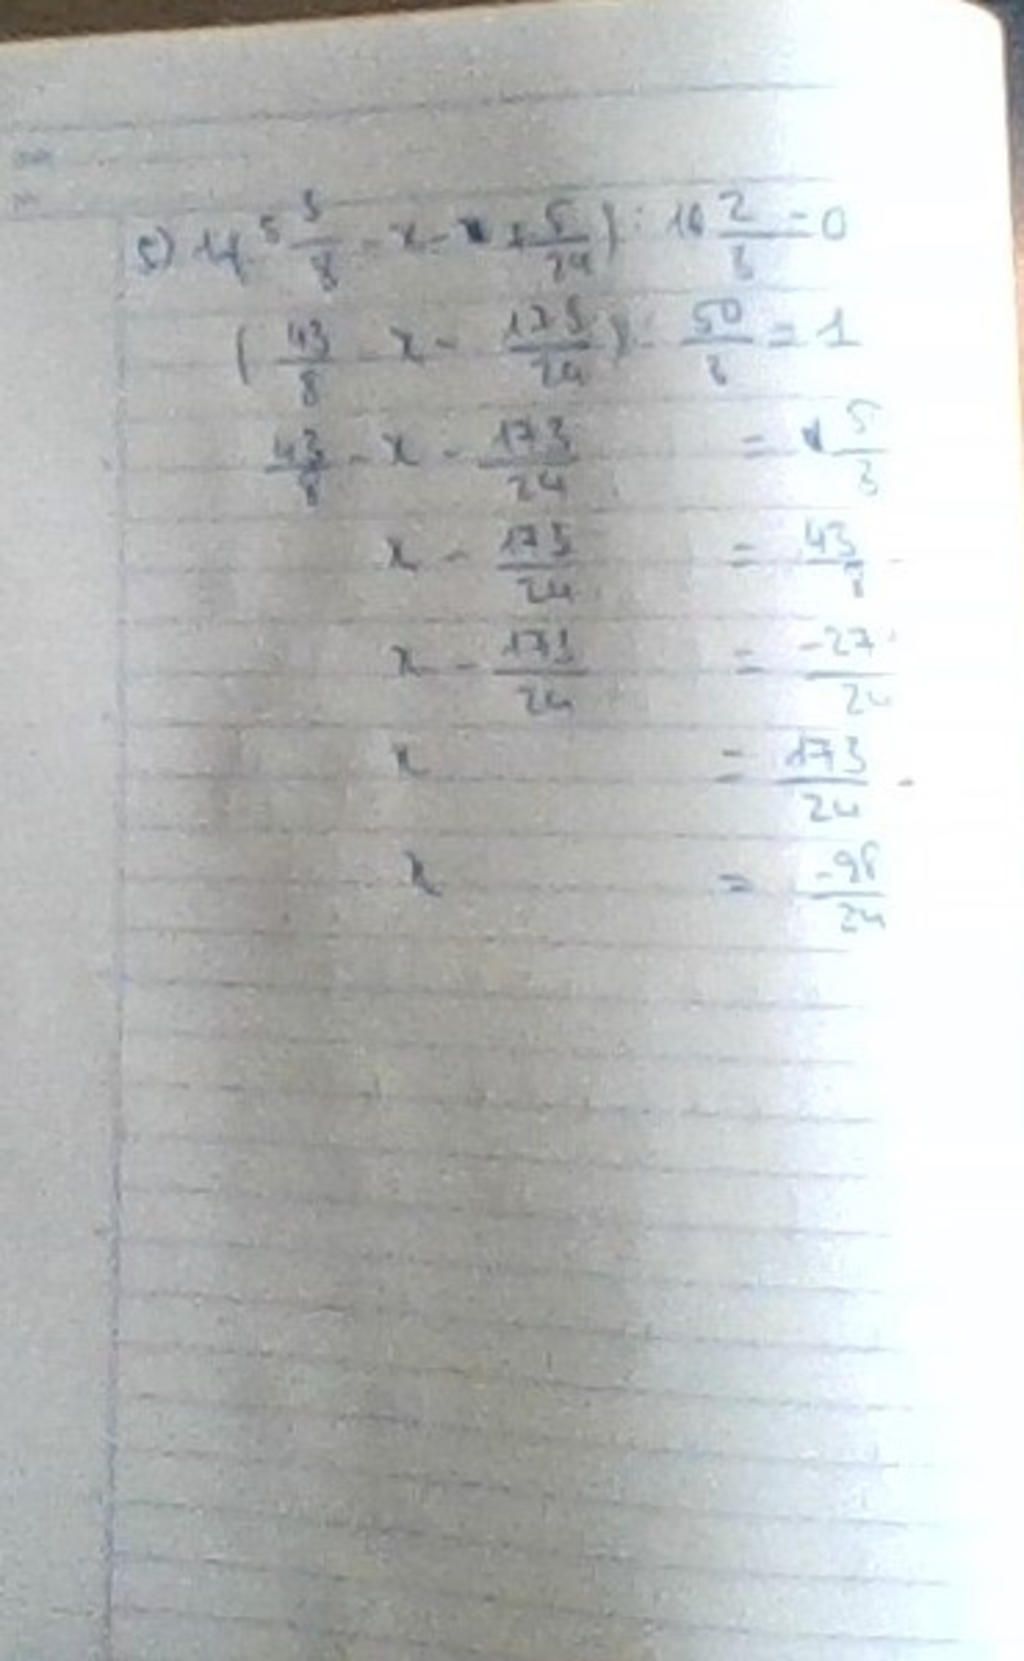 5) 1-( 5 3/8 - x - 7 5/24 ) : 16 2/3 = 0
( 43/8 - x - 173/24 ) : 50/3 = 1
43/8 - x - 173/24 = 5/3
x - 173/24 = 43/8
x - 173/24 = -27/24
x = 173/24 -
x = -98/24